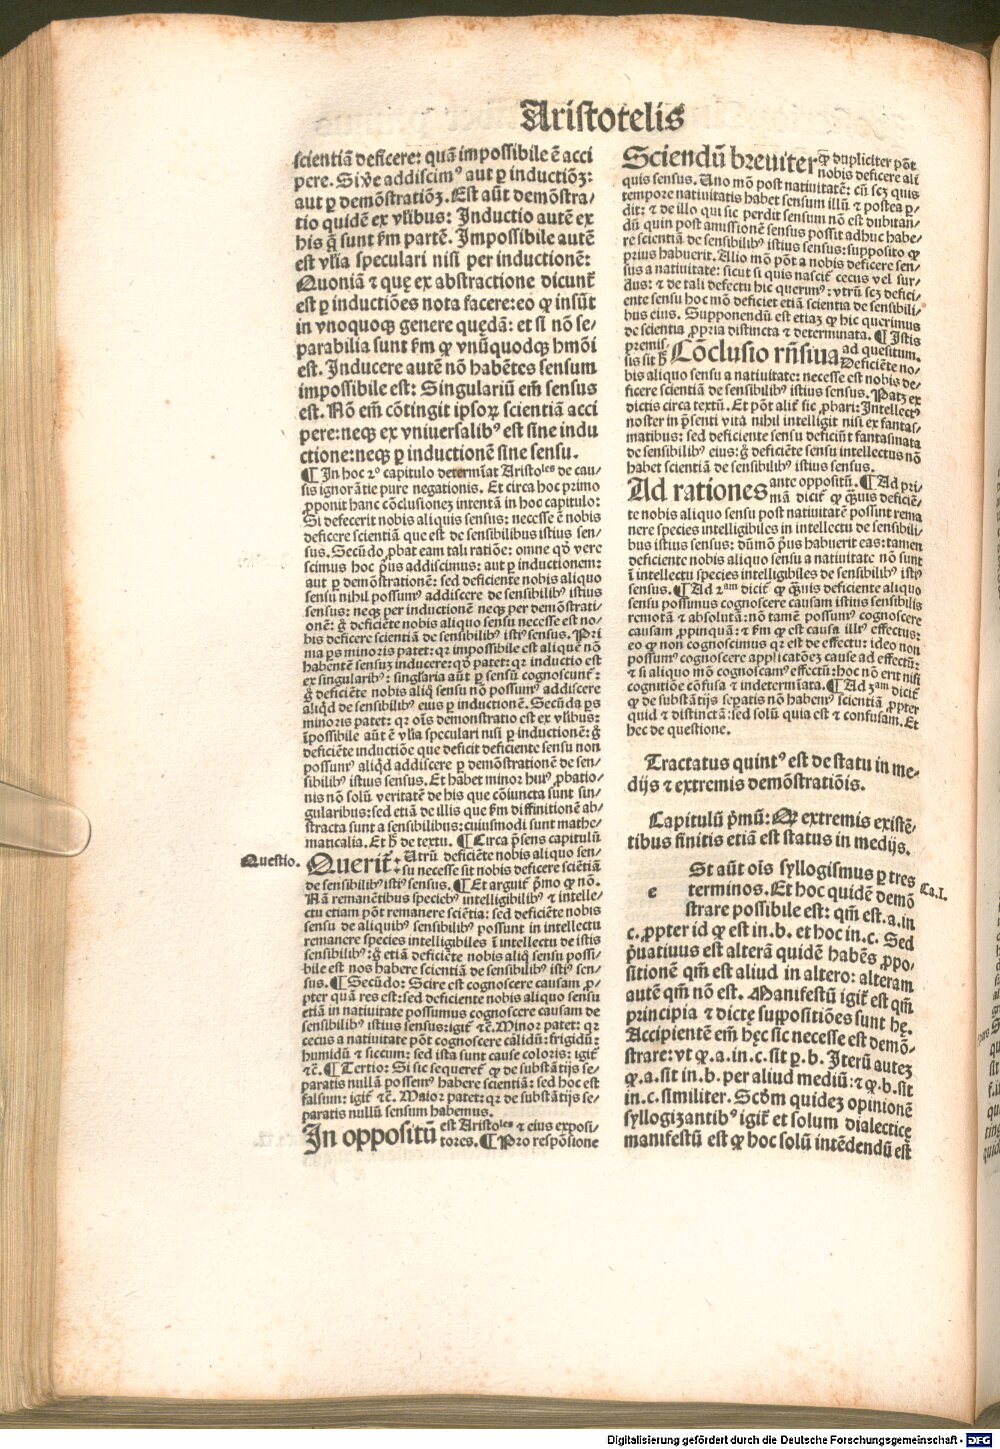 Aristotelis
scientiā deficere: quā impossibile ē acci
pere. Siv̓e addiscim⁹ aut ꝑ inductiōꝫ:
aut ꝑ demōstratiōꝫ. Est aūt demōstra-
tio quidē ex vl̓ibus: Inductio autē ex
his q̄ sunt ẜm partē. Impossibile autē
est vl̓ia speculari nisi per inductionē:
Quoniā ⁊ quę ex abstractione dicunt᷑
est ꝑ inductiōes nota facere: eo ꝙ insūt
in vnoquoqꝫ genere quędā: et si nō se-
parabilia sunt ẜm ꝙ vnūquodqꝫ hmōi
est. Inducere autē nō habētes sensum
impossibile est: Singulariū em̄ sensus
est. Nō em̄ cōtingit ipsoꝝ scientiā acci
pere: neqꝫ ex vniuersalib⁹ est sine indu
ctione: neqꝫ ꝑ inductionē sine sensu.
¶ In hoc 2⁰ capitulo determīat Aristoles de cau-
sis ignorātie pure negationis. Et circa hoc primo
ꝓponit hanc cōclusionez intentā in hoc capitulo:
Si defecerit nobis aliquis sensus: necesse ē nobis
deficere scientiā que est de sensibilibus istius sen-
sus. Secūdo ꝓbat eam tali ratiōe: omne qd̓ vere
scimus hoc pͥus addiscimus: aut ꝑ inductionem:
aut ꝑ demōstrationē: sed deficiente nobis aliquo
sensu nihil possum⁹ addiscere de sensibilib⁹ istius
sensus: neqꝫ per inductionē neqꝫ per demōstrati-
onē: g̊ deficiēte nobis aliquo sensu necesse est no-
bis deficere scientiā de sensibilib⁹ isti⁹ sensus. Pri
ma ps minoris patet: qꝛ impossibile est aliquē nō
habentē sensuꝫ inducere: qd̓ patet: qꝛ inductio est
ex singularib⁹: singl̓aria aūt ꝑ sensū cognoscunt᷑:
g̊ deficiēte nobis aliq̊ sensu nō possum⁹ addiscere
aliqd de sensibilib⁹ eius ꝑ inductionē. Secūda ps
minoris patet: qꝛ oīs demonstratio est ex vl̓ibus:
īpossibile aūt ē vl̓ia speculari nisi ꝑ inductionē: g̊
deficiēte inductiōe que deficit deficiente sensu non
possum⁹ aliqd addiscere ꝑ demōstrationē de sen-
sibilib⁹ istius sensus. Et habet minor hui⁹ ꝓbatio-
nis nō solū veritatē de his que cōiuncta sunt sin-
gularibus: sed etiā de illis que ẜm diffinitionē ab-
stracta sunt a sensibilibus: cuiusmodi sunt mathe-
maticalia. Et h̓ de textu. ¶ Circa p̄sens capitulū
Questio.
Querit᷑: Utrū deficiēte nobis aliquo sen-
su necesse sit nobis deficere sciētiā
de sensibilib⁹ isti⁹ sensus. ¶ Et arguit᷑ pͥmo ꝙ nō.
Nā remanētibus specieb⁹ intelligibilib⁹ ī intelle-
ctu etiam pōt remanere sciētia: sed deficiēte nobis
sensu de aliquib⁹ sensibilib⁹ possunt in intellectu
remanere species intelligibiles ī intellectu de istis
sensibilib⁹: g̊ etiā deficiēte nobis aliq̊ sensu possi-
bile est nos habere scientiā de sensibilib⁹ isti⁹ sen-
sus. ¶ Secūdo: Scire est cognoscere causam ꝓ-
pter quā res est: sed deficiente nobis aliquo sensu
etiā in natiuitate possumus cognoscere causam de
sensibilib⁹ istius sensus: igit᷑ ⁊c̄. Minor patet: qꝛ
cecus a natiuitate pōt cognoscere calidū: frigidū:
humidū ⁊ siccum: sed ista sunt cause coloris: igit᷑
⁊c̄. ¶ Tertio: Si sic sequeret᷑ ꝙ de substātijs se-
paratis nullā possem⁹ habere scientiā: sed hoc est
falsum: igit᷑ ⁊c̄. Maior patet: qꝛ de substātijs se-
paratis nullū sensum habemus.
In oppositū est Aristoles ⁊ eius exposi-
tores. ¶ Pro respōsione
Sciendū breuiter ꝙ dupliciter pōt
nobis deficere ali
quis sensus. Uno mō post natiuitatē: cū scꝫ quis
tempore natiuitatis habet sensum illū ⁊ postea ꝑ-
dit: ⁊ de illo qui sic perdit sensum nō est dubitan-
dū quin post amissionē sensus possit adhuc habe-
re scientiā de sensibilib⁹ istius sensus: supposito ꝙ
pͥus habuerit. Alio mō pōt a nobis deficere sen-
sus a natiuitate: sicut si quis nascit᷑ cecus vel sur-
dus: ⁊ de tali defectu hic querim⁹: vtrū scꝫ defici-
ente sensu hoc mō deficiet etiā scientia de sensibili-
bus eius. Supponendū est etiaꝫ ꝙ hic querimus
de scientia ꝓpria distincta ⁊ determinata. ¶ Istis
premis-
sis sit h̓ Cōclusio rn̄siua ad quesitum.
Deficiēte no-
bis aliquo sensu a natiuitate: necesse est nobis de-
ficere scientiā de sensibilib⁹ istius sensus. Patꝫ ex
dictis circa textū. Et pōt alit᷑ sic ꝓbari: Intellect⁹
noster in p̄senti vita nihil intelligit nisi ex fantas-
matibus: sed deficiente sensu deficiūt fantasmata
de sensibilib⁹ eius: g̊ deficiēte sensu intellectus nō
habet scientiā de sensibilib⁹ istius sensus.
Ad rationes ante oppositū. ¶ Ad pri-
mā dicit᷑ ꝙ q̄uis deficiē-
te nobis aliquo sensu post natiuitatē possint rema
nere species intelligibiles in intellectu de sensibili-
bus istius sensus: dūmō pͥus habuerit eas: tamen
deficiente nobis aliquo sensu a natiuitate nō sunt
ī intellectu species intelligibiles de sensibilib⁹ isti⁹
sensus. ¶ Ad 2am dicit᷑ ꝙ q̄uis deficiente aliquo
sensu possimus cognoscere causam istius sensibilis
remotā ⁊ absolutā: nō tamē possum⁹ cognoscere
causam ꝓpinquā: ⁊ ẜm ꝙ est causa illi⁹ effectus:
eo ꝙ non cognoscimus qꝛ est de effectu: ideo non
possum⁹ cognoscere applicatōeꝫ cause ad effectū:
⁊ si aliquo mō cognoscam⁹ effectū: hoc nō erit nisi
cognitiōe cōfusa ⁊ indetermīata. ¶ Ad 3am dicit᷑
ꝙ de substātijs seꝑatis nō habem⁹ scientiā ꝓpter
quid ⁊ distinctā: sed solū quia est ⁊ confusam. Et
hec de questione.
Tractatus quint⁹ est de statu in me-
dijs ⁊ extremis demōstratiōis.
Capitulū pͥmū: Ꝙ extremis existē-
tibus finitis etiā est status in medijs.
Ca.I.
e
St aūt oīs syllogismus ꝑ tres
terminos. Et hoc quidē demō
strare possibile est: qm̄ est .a. in
c. ꝓpter id ꝙ est in .b. et hoc in .c. Sed
pͥuatiuus est alterā quidē habēs ꝓpo-
sitionē qm̄ est aliud in altero: alteram
autē qm̄ nō est. Manifestū igit᷑ est qm̄
principia ⁊ dictę suppositiōes sunt hę.
Accipientē em̄ hęc sic necesse est demō-
strare: vt ꝙ .a. in .c. sit ꝑ .b. Iterū auteꝫ
ꝙ .a. sit in .b. per aliud mediū: ⁊ ꝙ .b. sit
in .c. similiter. Scd̓m quidez opinionē
syllogizantib⁹ igit᷑ et solum dialectice
manifestū est ꝙ hoc solū intēdendū est
Digitalisierung gefördert durch die Deutsche Forschungsgemeinschaft - DFG